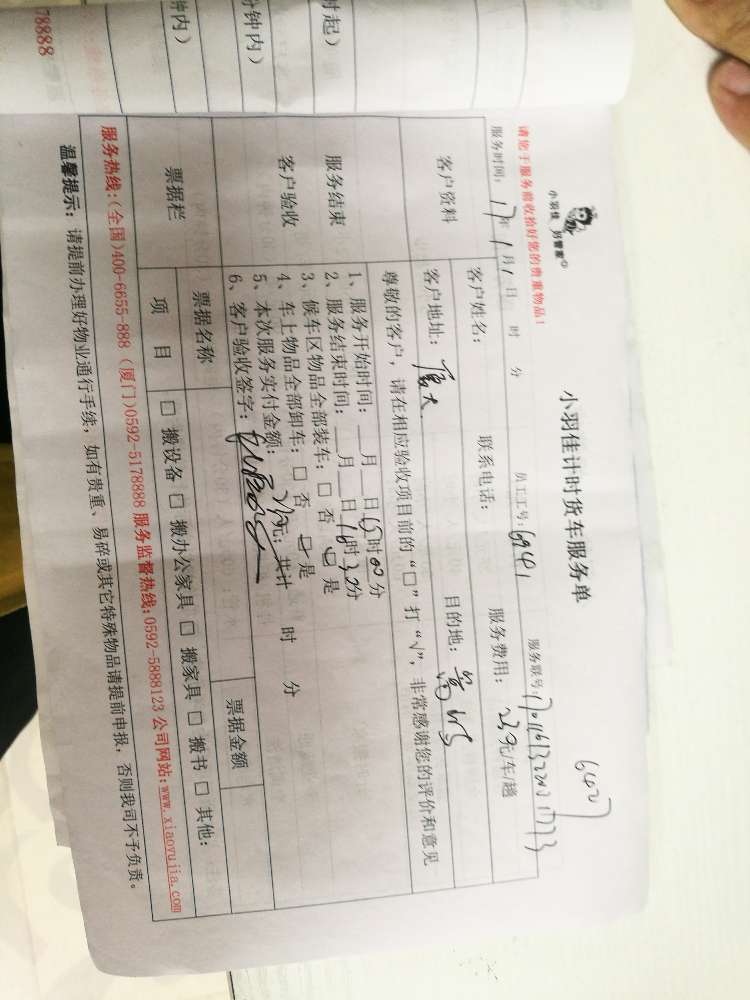 6427
小羽佳 另管家
小羽佳计时货车服务单
请您于服务前收拾好您的贵重物品！
服务时间：17年1月1日 时 分 员工工号：6941 服务联号：
客户资料 客户姓名： 联系电话： 服务费用：230元/车/趟
客户地址：厦大 目的地：
尊敬的客户，请在相应验收项目前的“□”打“√”，非常感谢您的评价和意见
服务结束
客户验收
1、服务开始时间：__月__日15时00分
2、服务结束时间：__月__日16时30分
3、候车区物品全部装车：□ 否 □ 是
4、车上物品全部卸车：□ 否 □ 是
5、本次服务实付金额： 元；共计 时 分
6、客户验收签字：
票据栏 票据名称 票据金额
项 目 □ 搬设备 □ 搬办公家具 □ 搬家具 □ 搬书 □ 其他:
服务热线:(全国)400-6655-888 (厦门)0592-5178888 服务监督热线:0592-5888123 公司网站:www.xiaoyujia.com
温馨提示：请提前办理好物业通行手续，如有贵重、易碎或其它特殊物品请提前申报，否则我司不予负责。
时起）
分钟内）
钟内）
78888